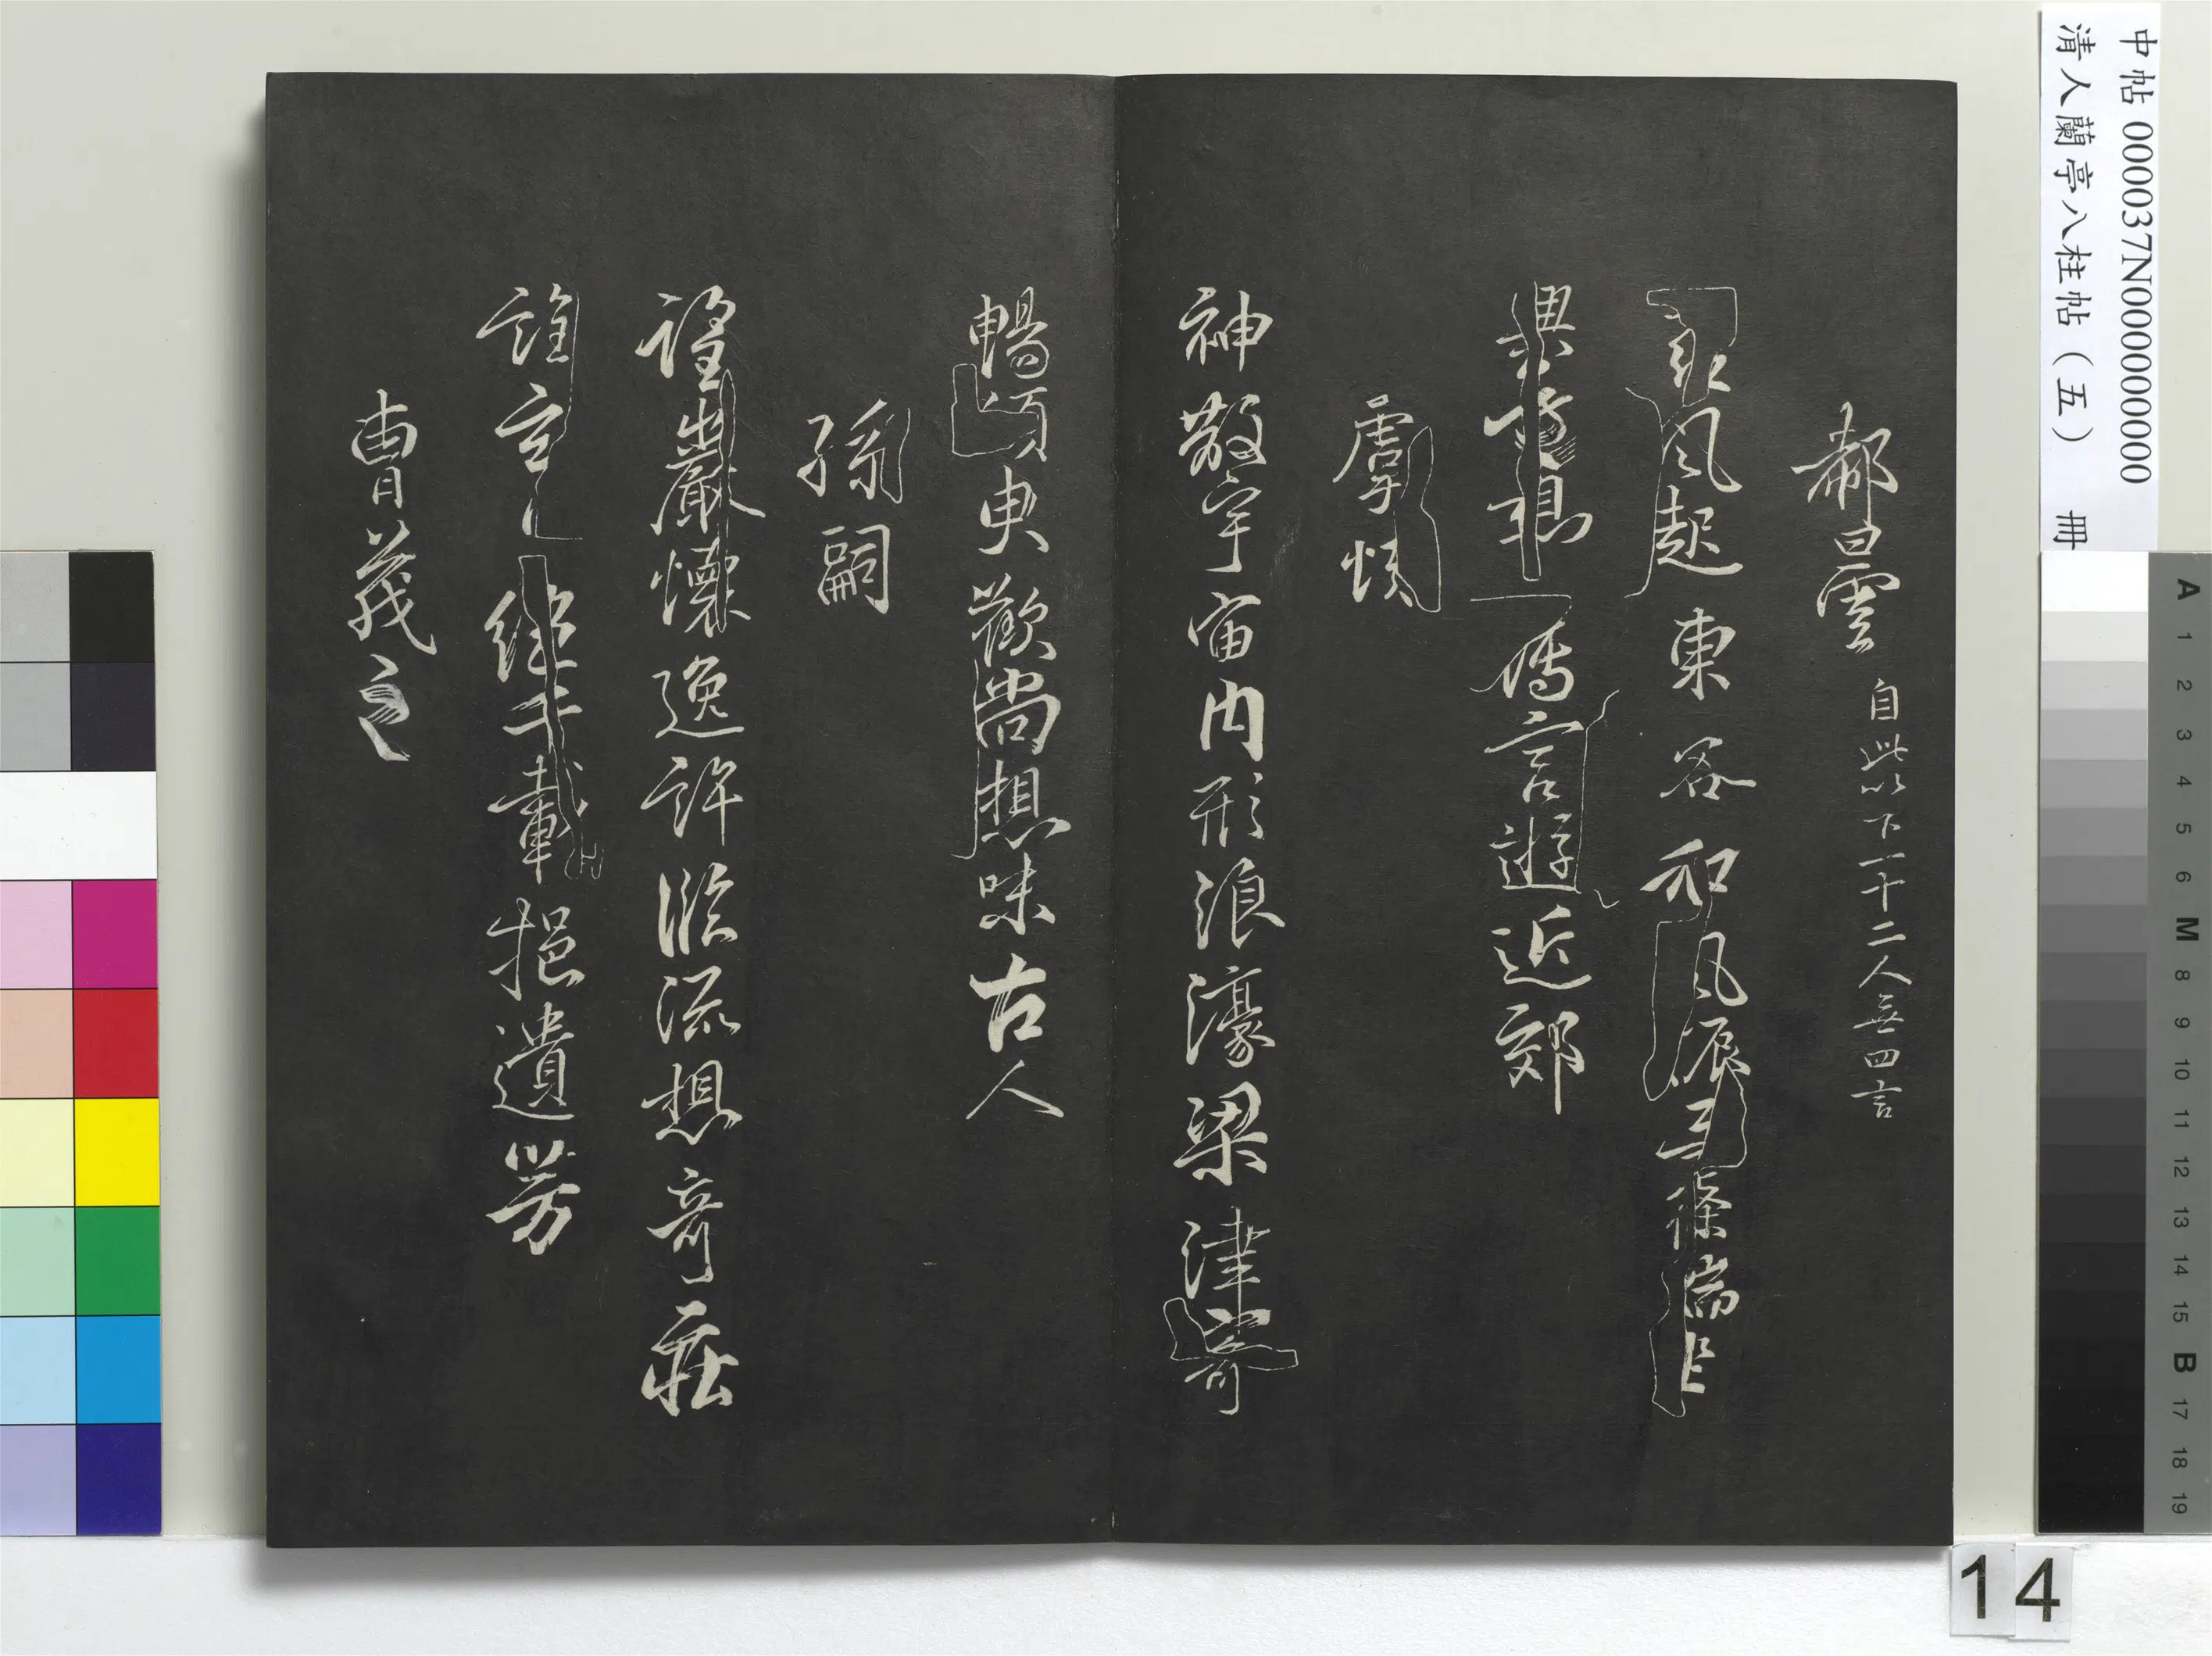 中帖 000037N000000000
清人蘭亭八柱帖（五） 冊
郗曇 自此以下一十二人无四言
風起東谷和風振柔條端坐
興遠想薄言遊近郊
虞悅
神散宇宙内形浪濠梁津寄
暢須臾歡尚想味古人
孫嗣
望巖懷逸許臨流想奇莊
誰云絕千載挹遺芳
曹茂之
A 1 2 3 4 5 6 M 8 9 10 11 12 13 14 15 B 17 18 19
14